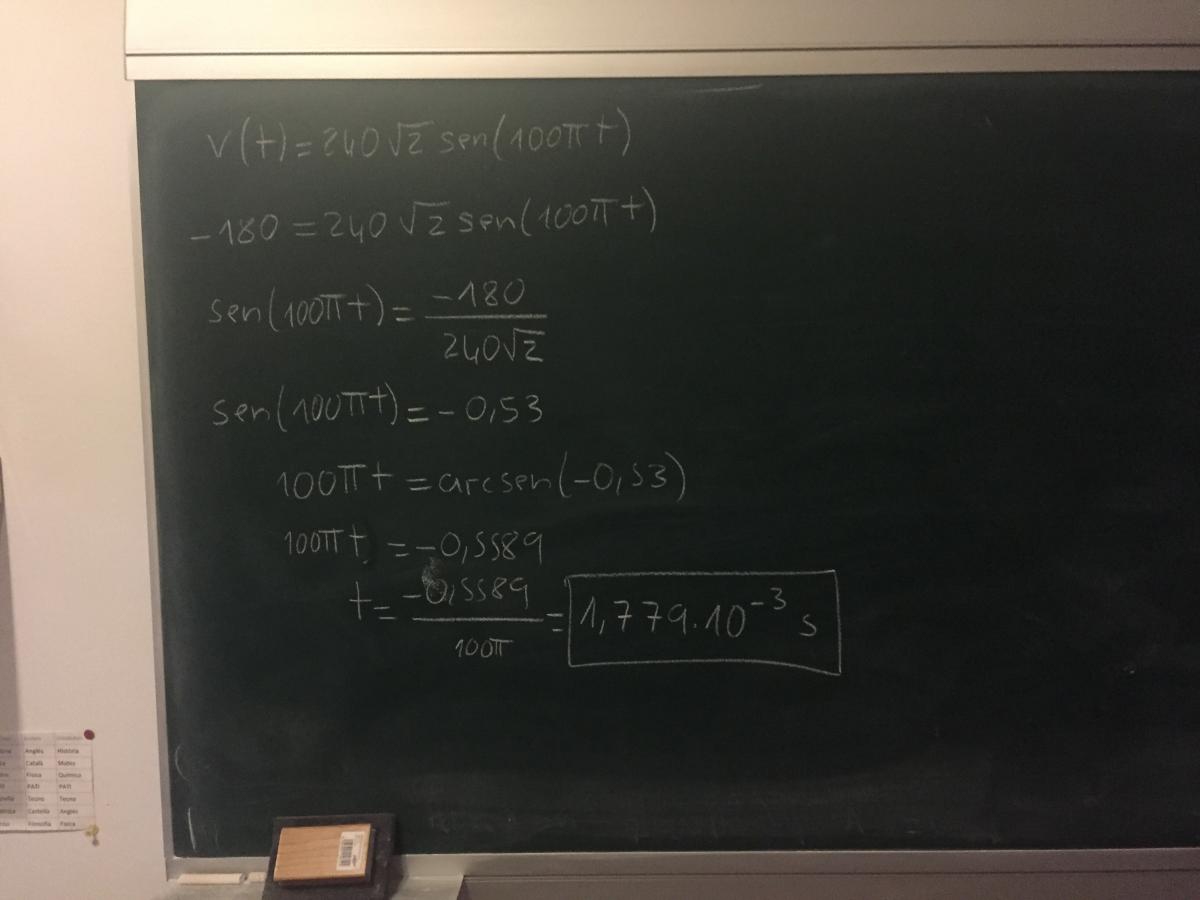 v(t)=240√2 sen(100πt)
-180=240√2 sen(100πt)
sen(100πt)=-180/240√2
sen(100πt)=-0,53
100πt=arcsen(-0,53)
100πt=-0,5589
t=-0,5589/100π=1,779·10⁻³ s
Anglès Història
Català Mates
Física Química
PATI PATI
Tecno Tecno
Castellà Anglès
Filosofia Física